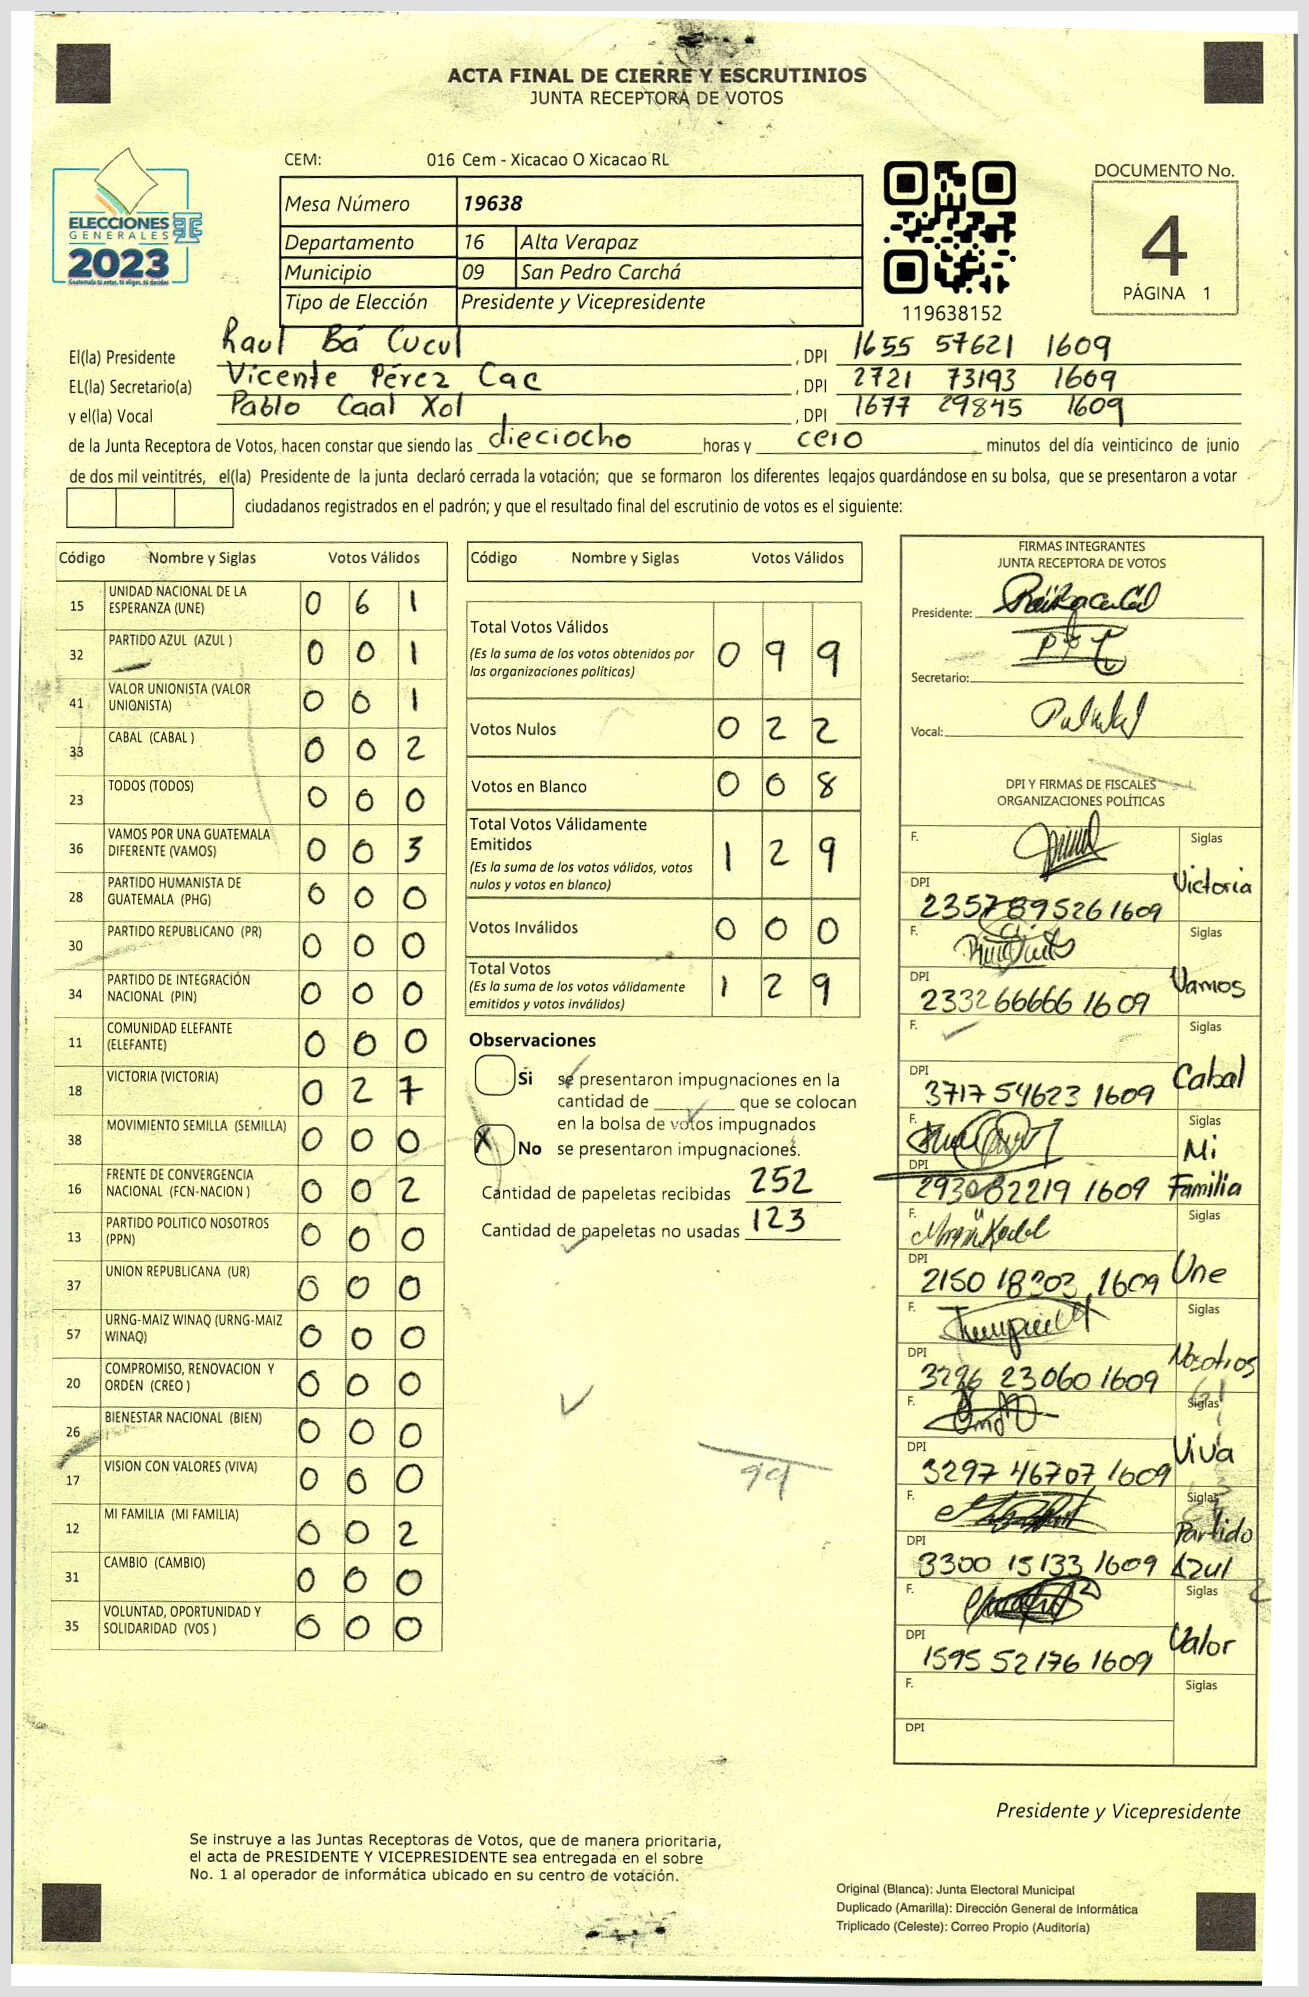 ACTA FINAL DE CIERRE Y ESCRUTINIOS
JUNTA RECEPTORA DE VOTOS
CEM: 016 Cem - Xicacao O Xicacao RL
ELECCIONES
GENERALES
2023
Guatemala tú votas, tú eliges, tú decides
Mesa Número 19638
Departamento 16 Alta Verapaz
Municipio 09 San Pedro Carchá
Tipo de Elección Presidente y Vicepresidente
119638152
DOCUMENTO No.
4
PÁGINA 1
El(la) Presidente Raul Bá Cucul , DPI 1655 57621 1609
EL(la) Secretario(a) Vicente Pérez Cac , DPI 2721 73193 1609
y el(la) Vocal Pablo Caal Xol , DPI 1677 29845 1609
de la Junta Receptora de Votos, hacen constar que siendo las dieciocho horas y cero minutos del día veinticinco de junio
de dos mil veintitrés, el(la) Presidente de la junta declaró cerrada la votación; que se formaron los diferentes legajos quardándose en su bolsa, que se presentaron a votar
ciudadanos registrados en el padrón; y que el resultado final del escrutinio de votos es el siguiente:
Código Nombre y Siglas Votos Válidos
15 UNIDAD NACIONAL DE LA ESPERANZA (UNE) 0 6 1
32 PARTIDO AZUL (AZUL ) 0 0 1
41 VALOR UNIONISTA (VALOR UNIONISTA) 0 0 1
33 CABAL (CABAL ) 0 0 2
23 TODOS (TODOS) 0 0 0
36 VAMOS POR UNA GUATEMALA DIFERENTE (VAMOS) 0 0 3
28 PARTIDO HUMANISTA DE GUATEMALA (PHG) 0 0 0
30 PARTIDO REPUBLICANO (PR) 0 0 0
34 PARTIDO DE INTEGRACIÓN NACIONAL (PIN) 0 0 0
11 COMUNIDAD ELEFANTE (ELEFANTE) 0 0 0
18 VICTORIA (VICTORIA) 0 2 7
38 MOVIMIENTO SEMILLA (SEMILLA) 0 0 0
16 FRENTE DE CONVERGENCIA NACIONAL (FCN-NACION ) 0 0 2
13 PARTIDO POLITICO NOSOTROS (PPN) 0 0 0
37 UNION REPUBLICANA (UR) 0 0 0
57 URNG-MAIZ WINAQ (URNG-MAIZ WINAQ) 0 0 0
20 COMPROMISO, RENOVACION Y ORDEN (CREO ) 0 0 0
26 BIENESTAR NACIONAL (BIEN) 0 0 0
17 VISION CON VALORES (VIVA) 0 0 0
12 MI FAMILIA (MI FAMILIA) 0 0 2
31 CAMBIO (CAMBIO) 0 0 0
35 VOLUNTAD, OPORTUNIDAD Y SOLIDARIDAD (VOS ) 0 0 0
Código Nombre y Siglas Votos Válidos
Total Votos Válidos 0 9 9
(Es la suma de los votos obtenidos por
las organizaciones políticas)
Votos Nulos 0 2 2
Votos en Blanco 0 0 8
Total Votos Válidamente
Emitidos 1 2 9
(Es la suma de los votos válidos, votos
nulos y votos en blanco)
Votos Inválidos 0 0 0
Total Votos 1 2 9
(Es la suma de los votos válidamente
emitidos y votos inválidos)
Observaciones
Si se presentaron impugnaciones en la
cantidad de ________ que se colocan
en la bolsa de votos impugnados
X No se presentaron impugnaciones.
Cantidad de papeletas recibidas 252
Cantidad de papeletas no usadas 123
99
FIRMAS INTEGRANTES
JUNTA RECEPTORA DE VOTOS
Presidente:
Secretario:
Vocal:
DPI Y FIRMAS DE FISCALES
ORGANIZACIONES POLÍTICAS
F. Siglas
DPI 2357895261609 Victoria
F. Siglas
DPI 233266666 1609 Vamos
F. Siglas
DPI 3717 54623 1609 Cabal
F. Siglas
DPI 293082219 1609 Mi Familia
F. Siglas
DPI 2150 18303 1609 Une
F. Siglas
DPI 3296 23060 1609 Nosotros
F. Siglas
DPI 3297 46707 1609 Viva
F. Siglas
DPI 3300 15133 1609 Partido Azul
F. Siglas
DPI 1595 52176 1609 Valor
F. Siglas
DPI
Presidente y Vicepresidente
Se instruye a las Juntas Receptoras de Votos, que de manera prioritaria,
el acta de PRESIDENTE Y VICEPRESIDENTE sea entregada en el sobre
No. 1 al operador de informática ubicado en su centro de votación.
Original (Blanca): Junta Electoral Municipal
Duplicado (Amarilla): Dirección General de Informática
Triplicado (Celeste): Correo Propio (Auditoría)